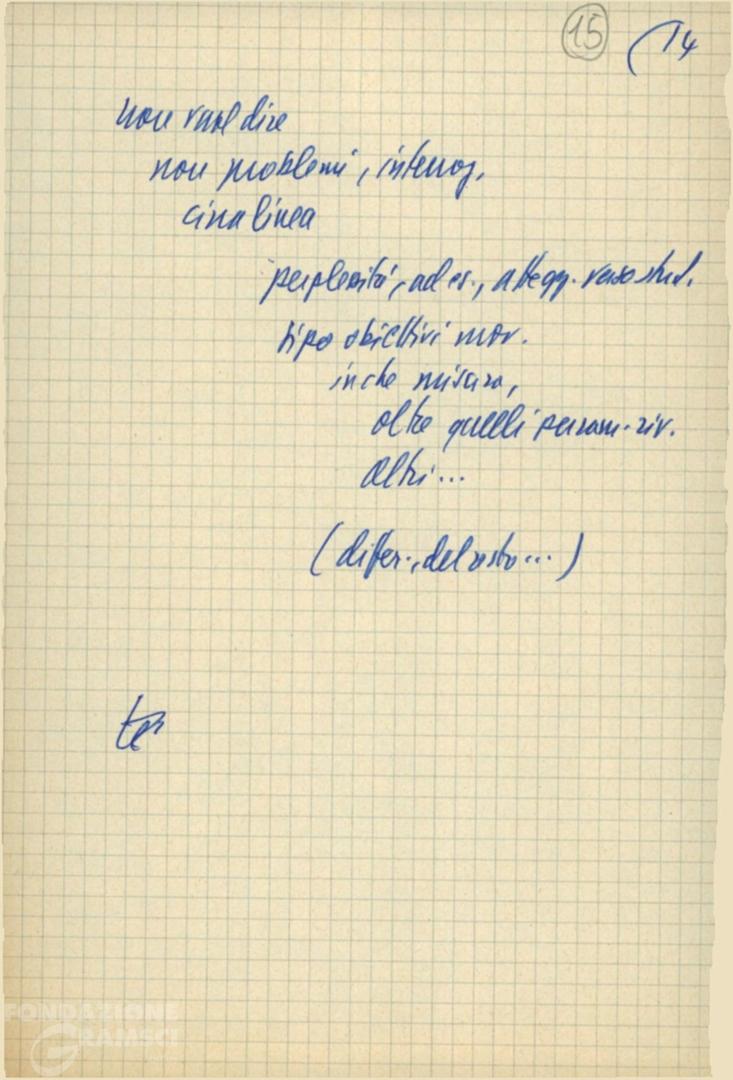 15 14
non vuol dire
non problemi, interrog.
circa linea
perplessità, ad es., attegg. verso stud.
tipo obiettivi mov.
in che misura,
oltre quelli param. riv.
altri...
(differ., del resto...)
FONDAZIONE
GRAMSCI